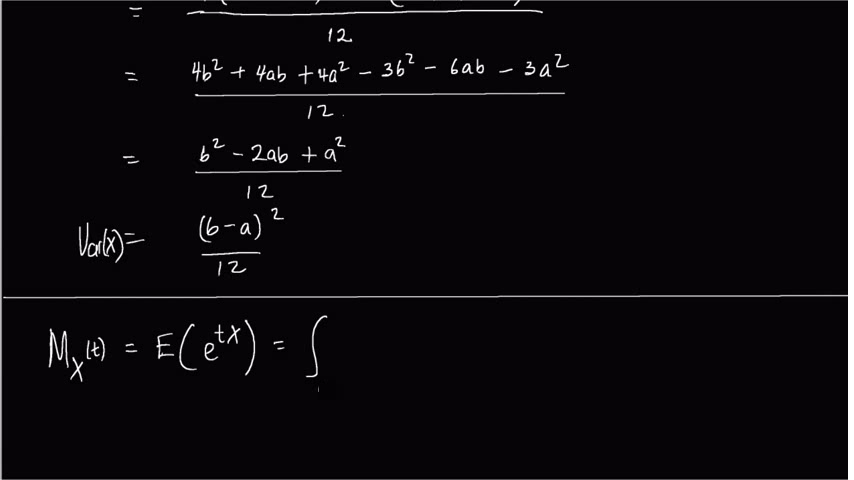 = 12
= 4b² + 4ab + 4a² - 3b² - 6ab - 3a² / 12
= b² - 2ab + a² / 12
Var(x) = (b-a)² / 12
M_X(t) = E(e^{tX}) = ∫